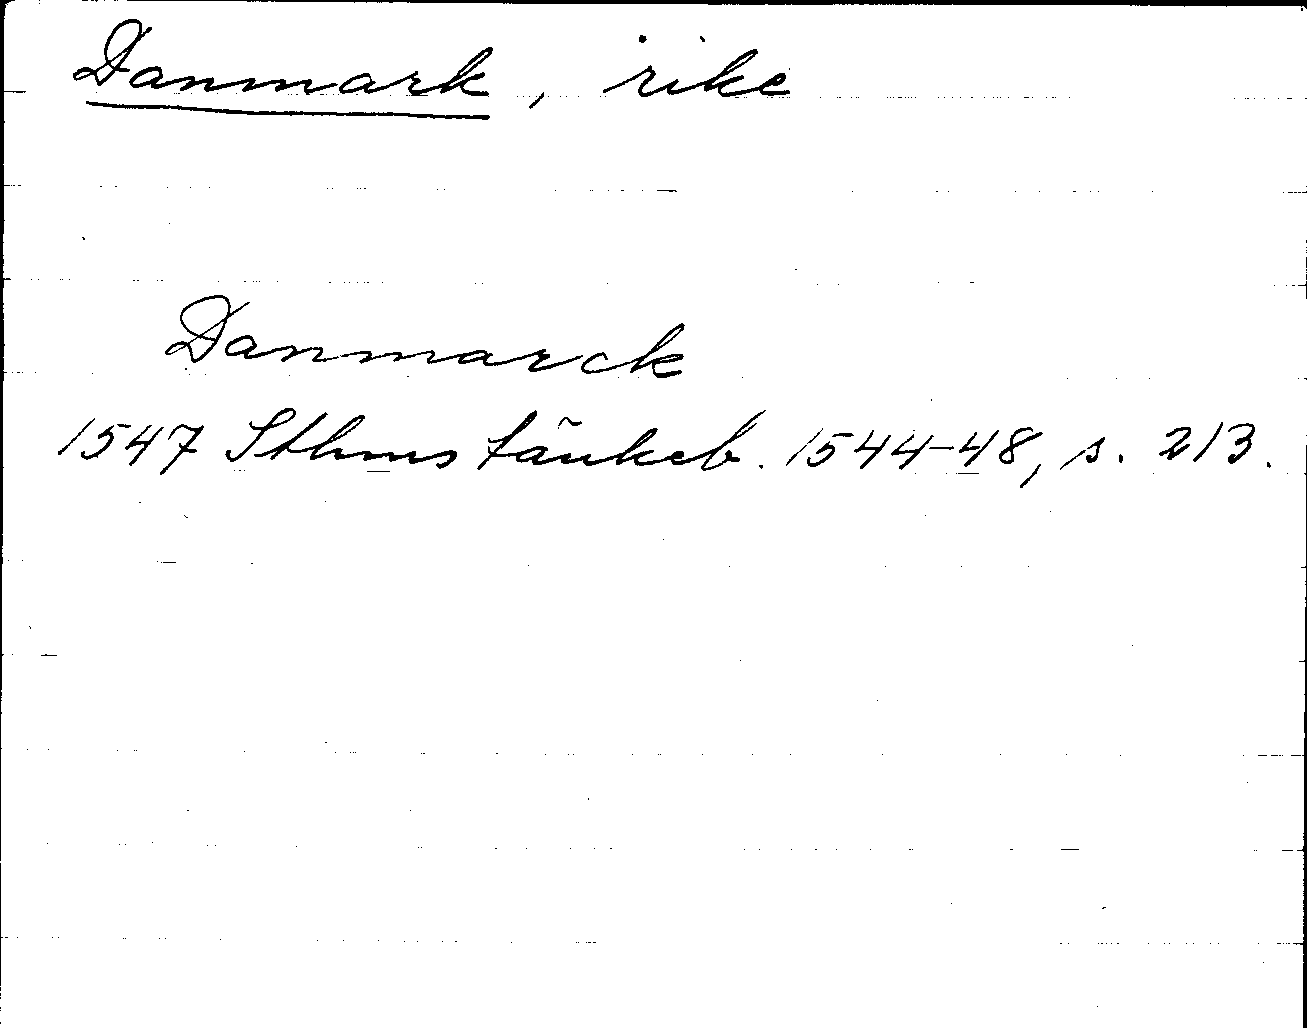 Danmark, rike
Danmarck
1547 Sthms tänkeb. 1544-48, s. 213.